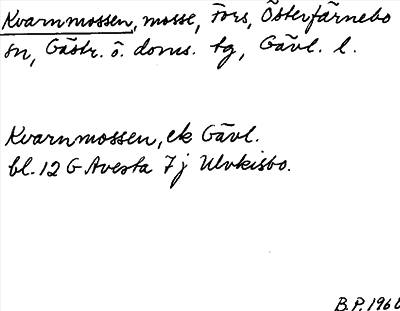 Kvarnmossen, mosse, Fors, Österfärnebo
sn, Gästr. ö. doms. tg, Gävl. l.
Kvarnmossen, ek Gävl.
bl. 12 G Avesta 7 j Ulvkisbo.
B.P. 1966